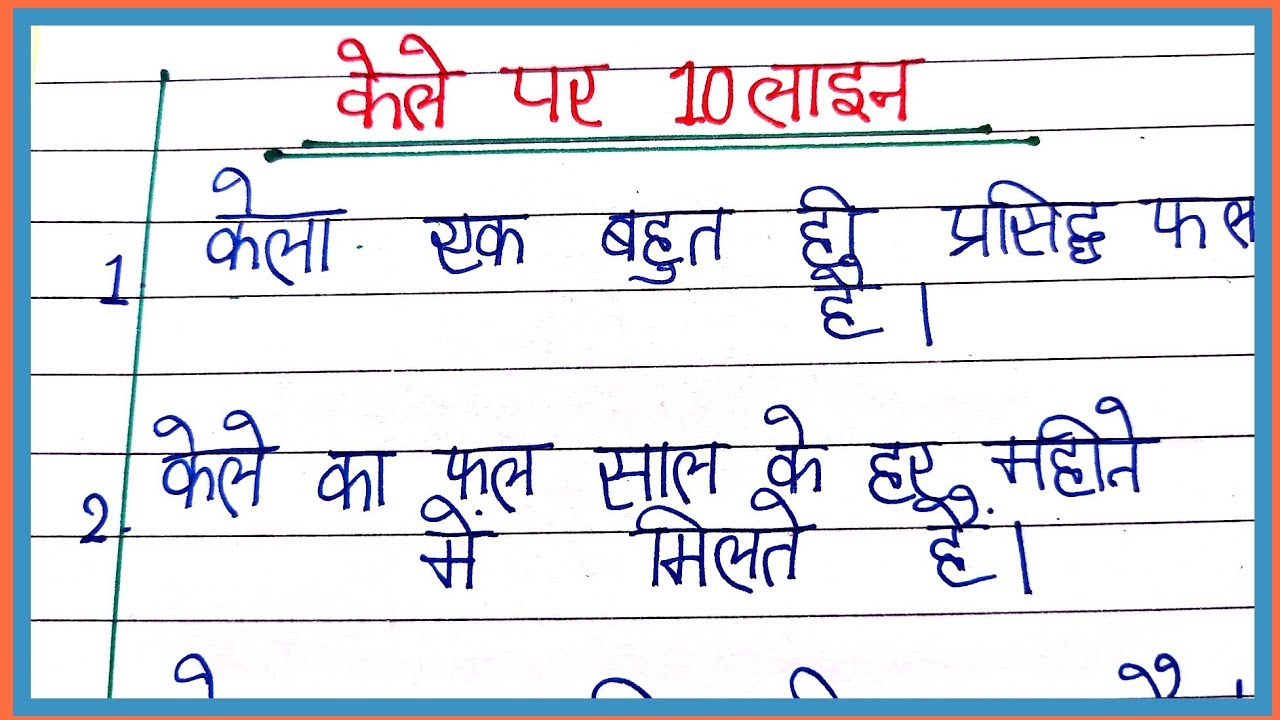 केले पर 10 लाइन
1 केला एक बहुत ही प्रसिद्ध फल
है।
2. केले का फ़ल साल के हर महीने
में मिलते हैं।